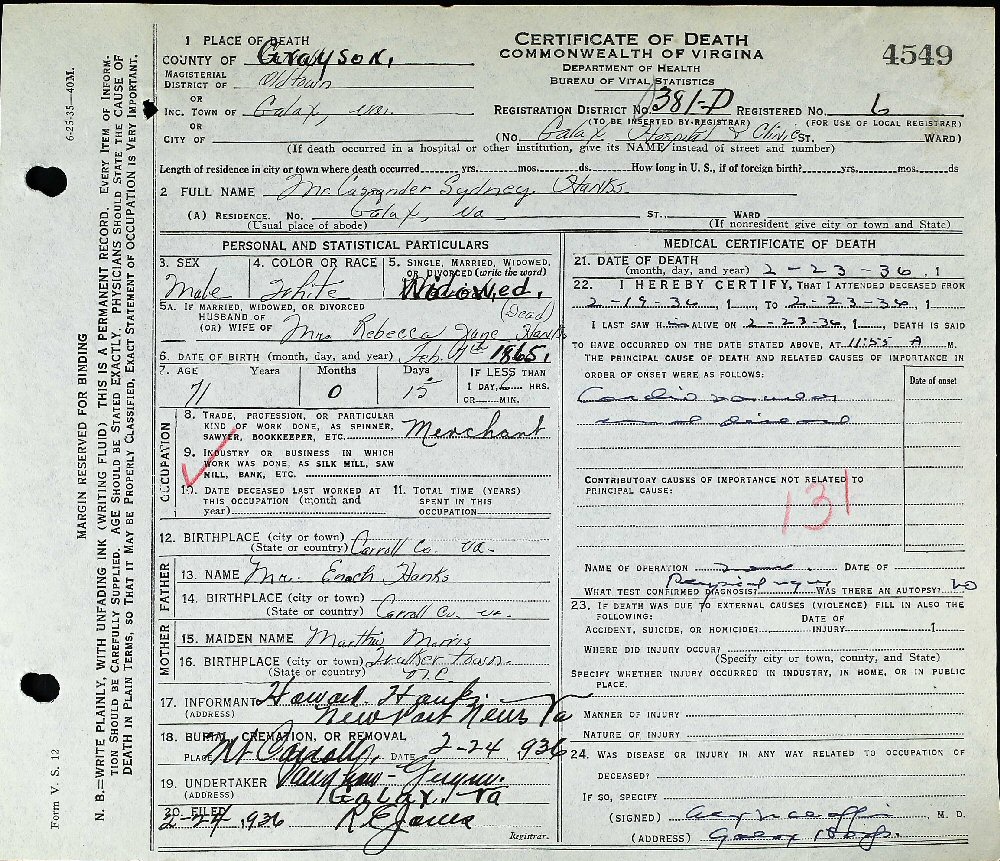 6-25-35—40M.
MARGIN RESERVED FOR BINDING
N. B.—WRITE PLAINLY, WITH UNFADING INK (WRITING FLUID) THIS IS A PERMANENT RECORD. EVERY ITEM OF INFORM-
TION SHOULD BE CAREFULLY SUPPLIED. AGE SHOULD BE STATED EXACTLY. PHYSICIANS SHOULD STATE THE CAUSE OF
DEATH IN PLAIN TERMS, SO THAT IT MAY BE PROPERLY CLASSIFIED. EXACT STATEMENT OF OCCUPATION IS VERY IMPORTANT.
Form V. S. 12
CERTIFICATE OF DEATH
COMMONWEALTH OF VIRGINIA
DEPARTMENT OF HEALTH
BUREAU OF VITAL STATISTICS
4549
1 PLACE OF DEATH
COUNTY OF Grayson,
MAGISTERIAL
DISTRICT OF Oldtown
OR
INC. TOWN OF Galax, Va.
OR
CITY OF
REGISTRATION DISTRICT No. 381-D REGISTERED No. 6
(TO BE INSERTED BY REGISTRAR) (FOR USE OF LOCAL REGISTRAR)
(No. Galax Hospital & Clinic ST. WARD)
(If death occurred in a hospital or other institution, give its NAME instead of street and number)
Length of residence in city or town where death occurred yrs. mos. ds. How long in U. S., if of foreign birth? yrs. mos. ds
2 FULL NAME Mr. Cassander Sydney Hanks
(A) RESIDENCE. No. Galax, Va ST. WARD
(Usual place of abode) (If nonresident give city or town and State)
PERSONAL AND STATISTICAL PARTICULARS
3. SEX
Male
4. COLOR OR RACE
White
5. SINGLE, MARRIED, WIDOWED,
OR DIVORCED (write the word)
Widowed.
5A. IF MARRIED, WIDOWED, OR DIVORCED
HUSBAND OF (Dead)
(OR) WIFE OF Mrs Rebecca Jane Hanks
6. DATE OF BIRTH (month, day, and year) Feb. 1865.
7. AGE Years Months Days IF LESS THAN
1 DAY, HRS.
71 0 15 OR MIN.
OCCUPATION
8. TRADE, PROFESSION, OR PARTICULAR
KIND OF WORK DONE, AS SPINNER,
SAWYER, BOOKKEEPER, ETC. Merchant
9. INDUSTRY OR BUSINESS IN WHICH
WORK WAS DONE, AS SILK MILL, SAW
MILL, BANK, ETC.
10. DATE DECEASED LAST WORKED AT
THIS OCCUPATION (month and
year)
11. TOTAL TIME (YEARS)
SPENT IN THIS
OCCUPATION
12. BIRTHPLACE (city or town)
(State or country) Carroll Co. Va.
FATHER
13. NAME Mr. Enoch Hanks
14. BIRTHPLACE (city or town)
(State or country) Carroll Co. Va.
MOTHER
15. MAIDEN NAME Martha Morris
16. BIRTHPLACE (city or town) Walkertown
(State or country) N.C.
17. INFORMANT Howard Hanks
(ADDRESS) Newport News Va
18. BURIAL, CREMATION, OR REMOVAL
PLACE Mt Carroll, DATE 2-24 1936
19. UNDERTAKER Vaughan-Guynn.
(ADDRESS) Galax Va
20. FILED
2-24 1936 R E Jones
Registrar.
MEDICAL CERTIFICATE OF DEATH
21. DATE OF DEATH
(month, day, and year) 2-23-36, 1
22. I HEREBY CERTIFY, THAT I ATTENDED DECEASED FROM
2-19-36, 1 TO 2-23-36, 1
I LAST SAW HIM ALIVE ON 2-23-36, 1 DEATH IS SAID
TO HAVE OCCURRED ON THE DATE STATED ABOVE, AT 11:55 A M.
THE PRINCIPAL CAUSE OF DEATH AND RELATED CAUSES OF IMPORTANCE IN
ORDER OF ONSET WERE AS FOLLOWS:
Date of onset
Cardio vascular
renal disease
CONTRIBUTORY CAUSES OF IMPORTANCE NOT RELATED TO
PRINCIPAL CAUSE:
131
NAME OF OPERATION none DATE OF
WHAT TEST CONFIRMED DIAGNOSIS? Physical WAS THERE AN AUTOPSY? No
23. IF DEATH WAS DUE TO EXTERNAL CAUSES (VIOLENCE) FILL IN ALSO THE
FOLLOWING:
DATE OF
ACCIDENT, SUICIDE, OR HOMICIDE? INJURY 1
WHERE DID INJURY OCCUR?
(Specify city or town, county, and State)
SPECIFY WHETHER INJURY OCCURRED IN INDUSTRY, IN HOME, OR IN PUBLIC
PLACE.
MANNER OF INJURY
NATURE OF INJURY
24. WAS DISEASE OR INJURY IN ANY WAY RELATED TO OCCUPATION OF
DECEASED?
IF SO, SPECIFY
(SIGNED) M. D.
(ADDRESS) Galax